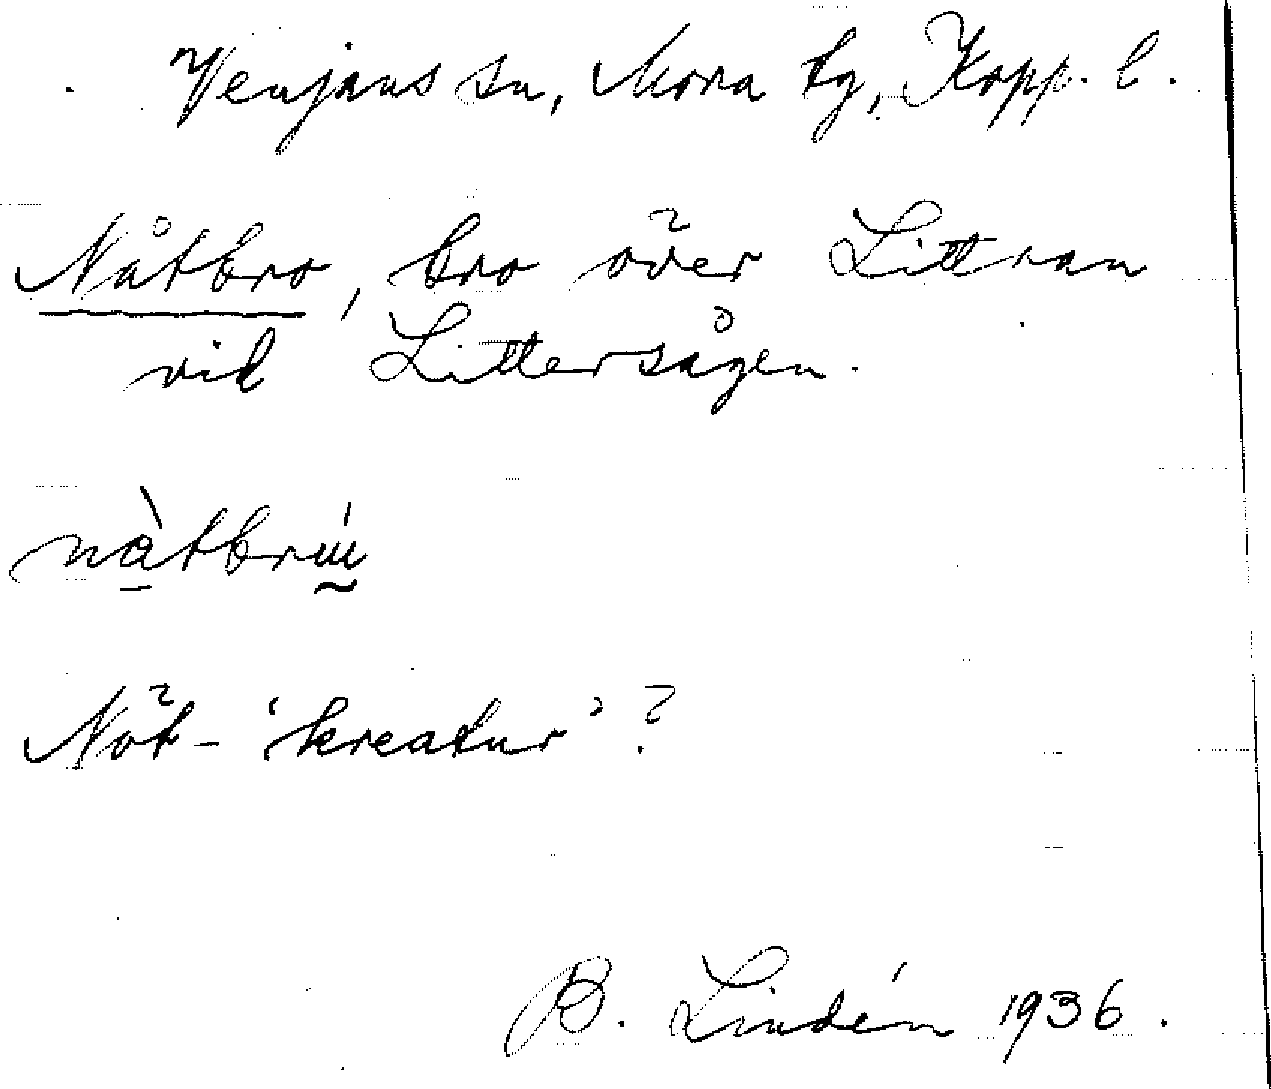 Venjans sn, Mora tg, Kopp. l.
Nåtbro, bro över Littran
vid Littersågen.
Nöt- 'kreatur' ?
B. Lindén 1936.